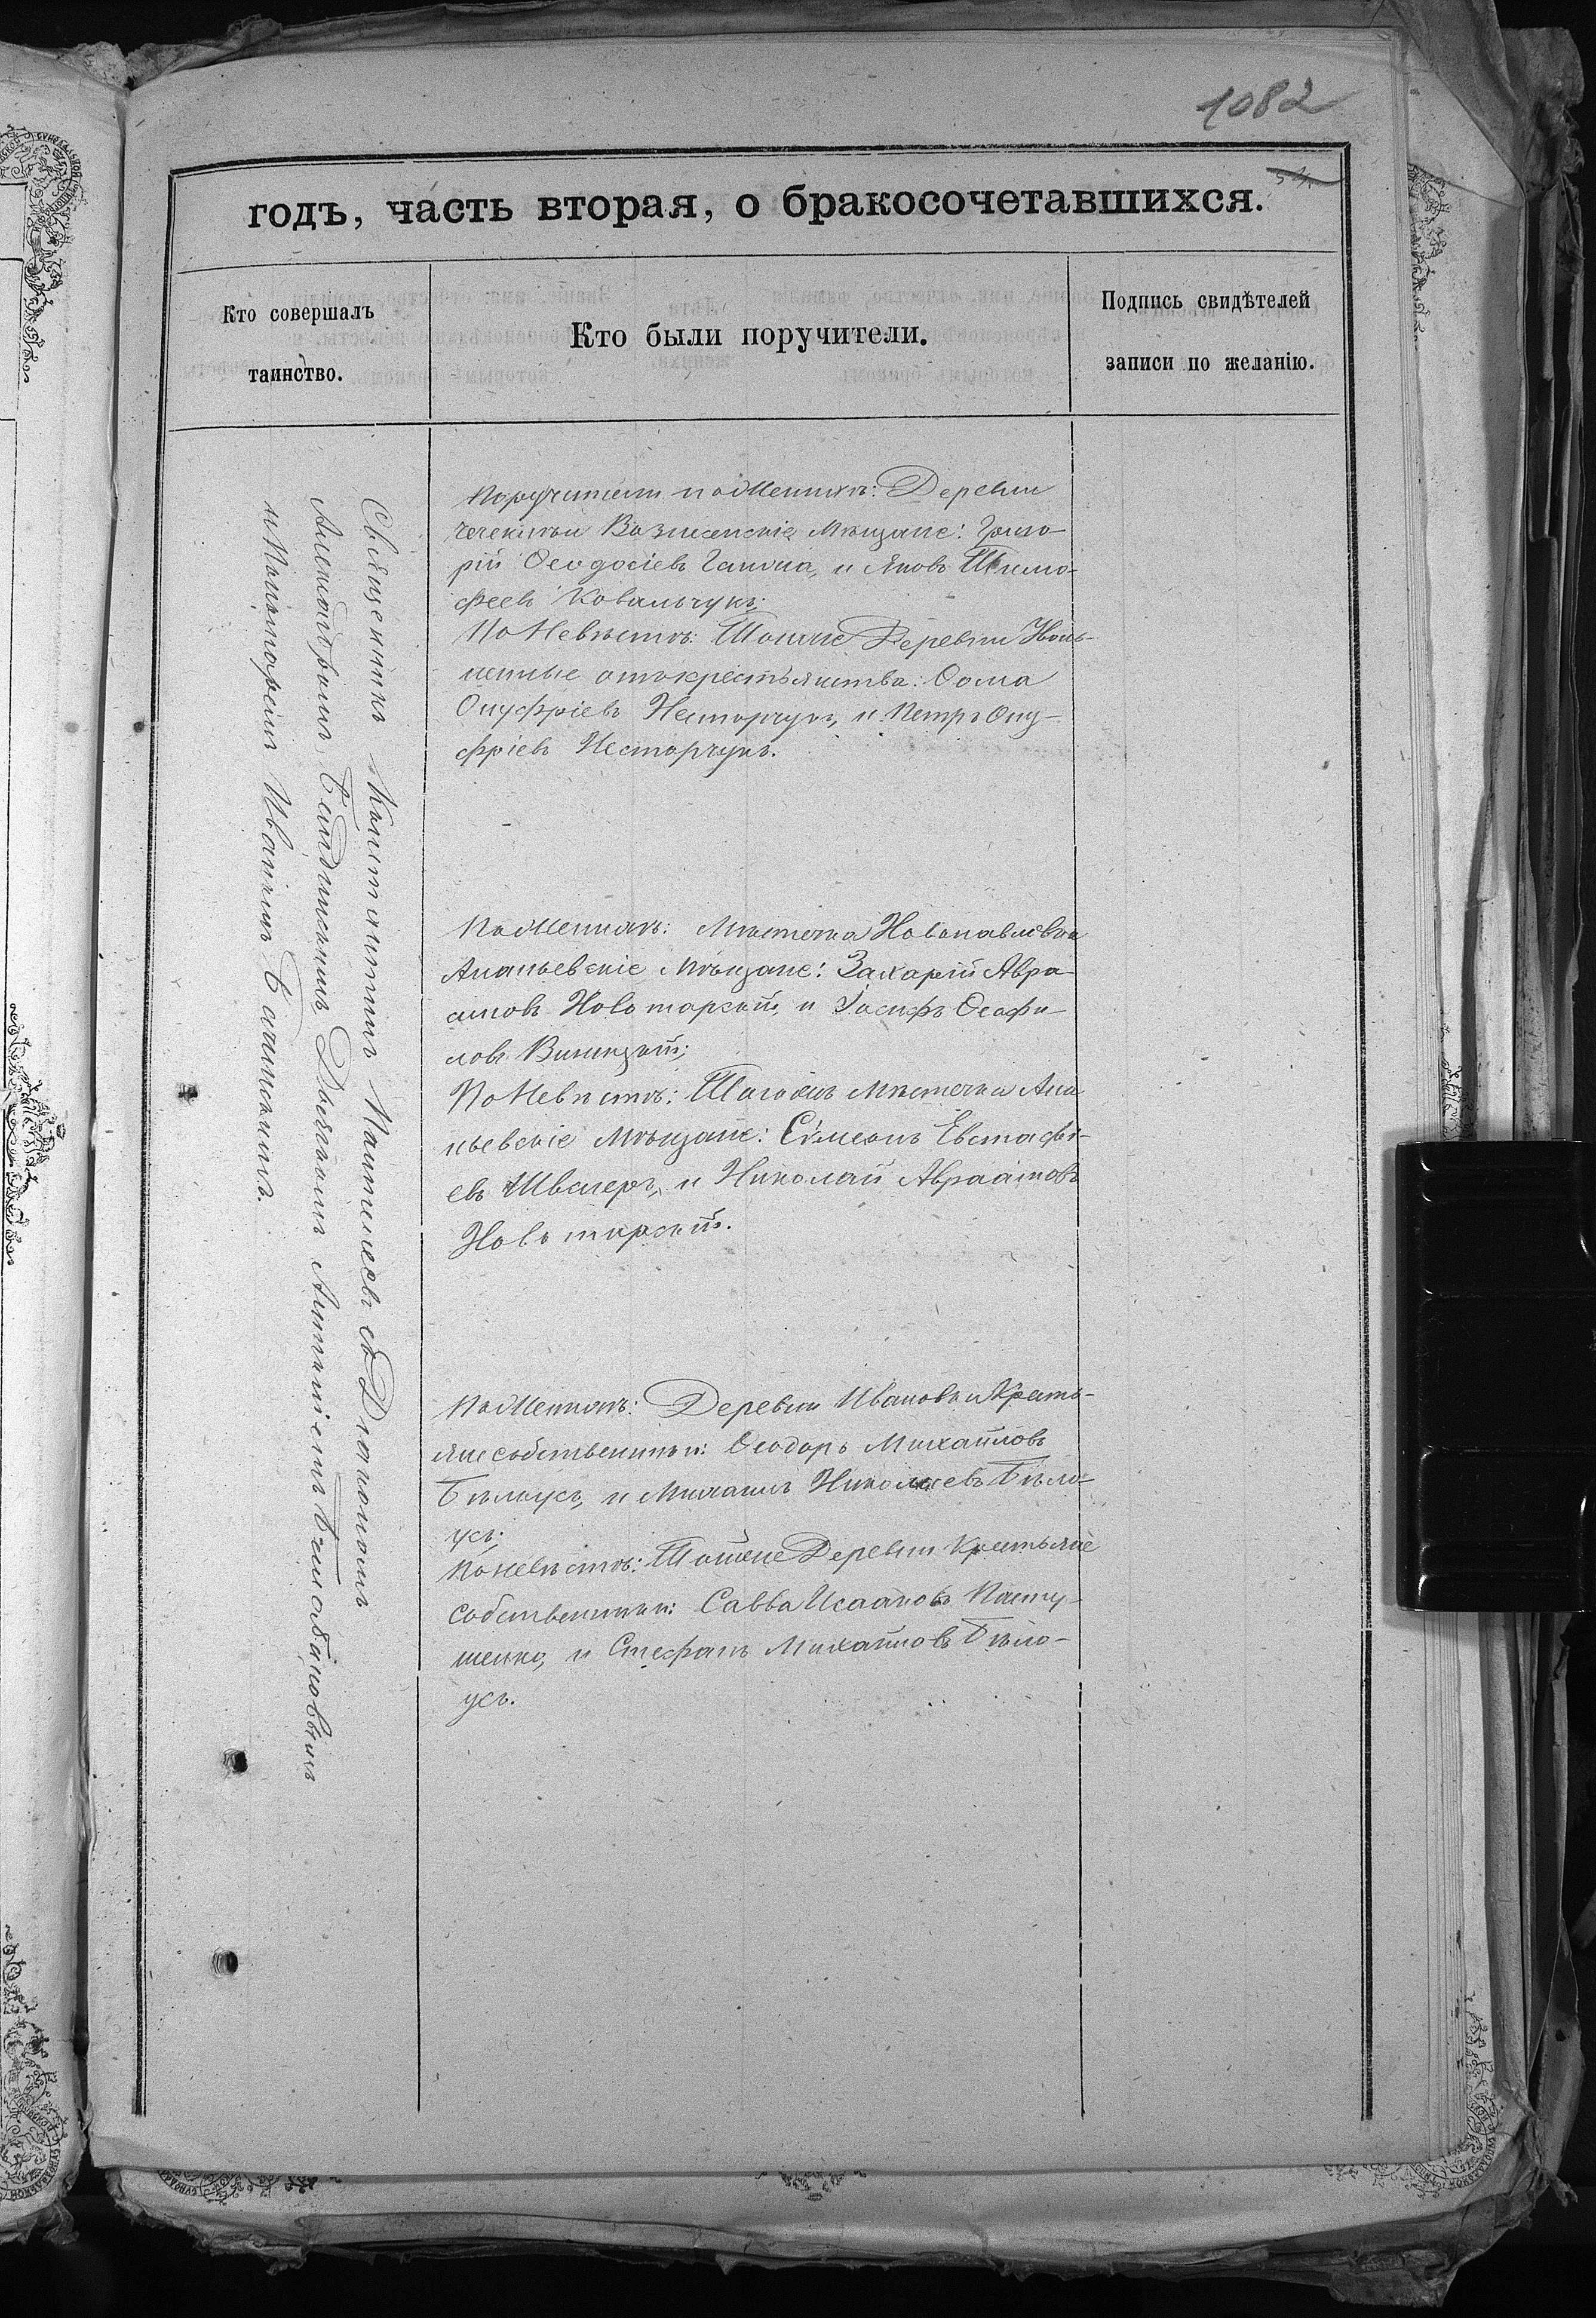 1082
годъ, часть вторая, о бракосочетавшихся.
Кто совершалъ
таинство.
Кто были поручители.
Подпись свидѣтелей
записи по желанію.
Священникъ Константинъ Пантелеевъ съ Діакономъ
Александромъ Дьячкомъ
и Пономаремъ Иваномъ
Поручители по Женихѣ: Деревни
Вознесенскіе Мѣщане: Григо-
рій Ѳеодосіевъ Гапона, и Яковъ Тимо-
феевъ Ковальчукъ;
По Невѣстѣ: Тоиже Деревни Уволь-
ненные отъ крестьянства: Ѳома
Онуфріевъ Несторчукъ, и Петръ Ону-
фріевъ Несторчукъ.
По Женихѣ: Мѣстечка Новопавловки
Ананьевскіе Мѣщане: Захарій Авра-
амовъ Новотарскій, и Іосифъ Ѳеофи-
ловъ Виницкій;
По Невѣстѣ: Тогоже Мѣстечка Ана
ньевскіе Мѣщане: Симеонъ Евстафі-
евъ Швецеръ, и Николай Авраамовъ
Новотарскій.
По Женихѣ: Деревни Ивановки Кресть-
яне собственники: Ѳеодоръ Михайловъ
Бѣлоусъ, и Михаилъ Николаевъ Бѣло-
усъ;
По невѣстѣ: Тоиже Деревни Крестьяне
собственники: Савва Исааковъ Пасту-
шенко, и Стефанъ Михайловъ Бѣло-
усъ.